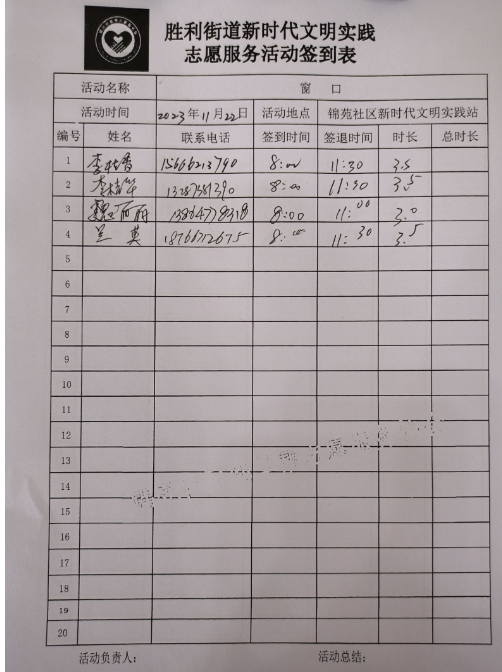 胜利街道新时代文明实践
志愿服务活动签到表
活动名称 窗 口
活动时间 2023年11月22日 活动地点 锦苑社区新时代文明实践站
编号 姓名 联系电话 签到时间 签退时间 时长 总时长
1 李桂香 15666213790 8:00 11:30 3.5
2 李桂华 13287381390 8:00 11:30 3.5
3 魏丽丽 13864778318 8:00 11:00 3.0
4 兰英 18766712675 8:00 11:30 3.5
5
6
7
8
9
10
11
12
13
14
15
16
17
18
19
20
活动负责人: 活动总结: